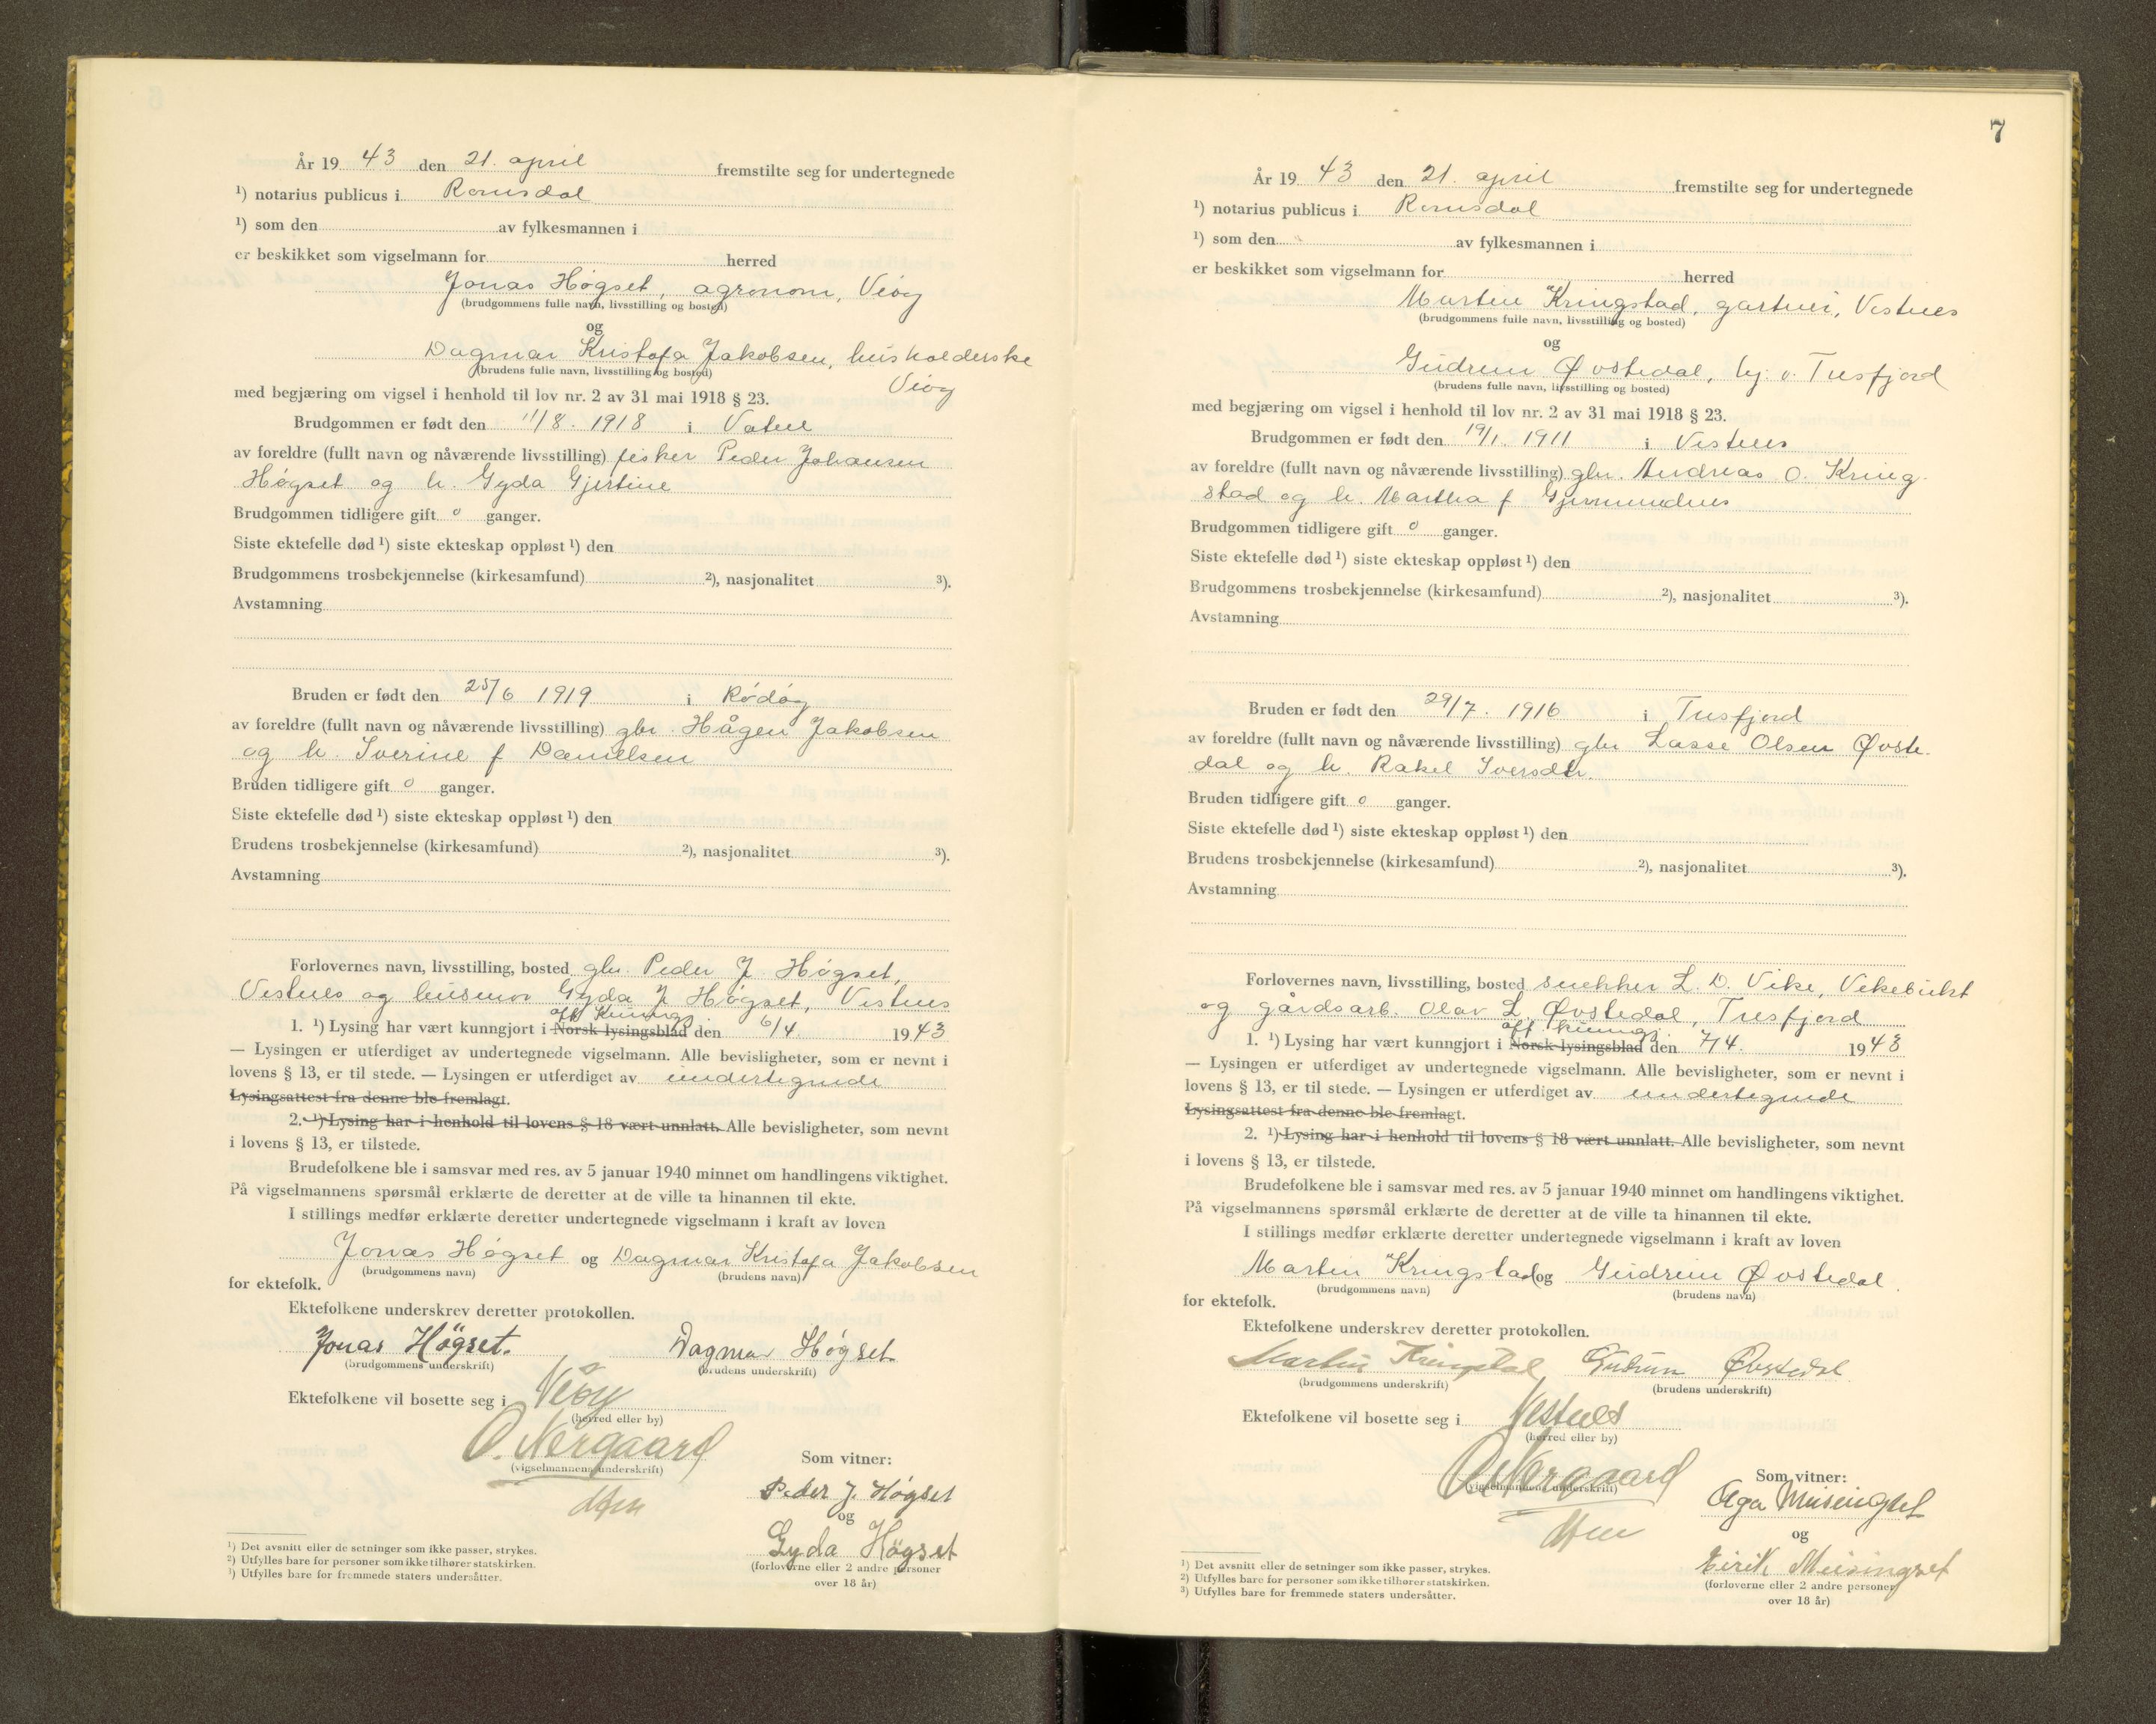 År 19 43 den 21. april fremstilte seg for undertegnede
¹) notarius publicus i Romsdal
¹) som den av fylkesmannen i
er beskikket som vigselmann for herred
Jonas Høgset, agronom, Veøy
(brudgommens fulle navn, livsstilling og bosted)
og
Dagmar Kristofa Jakobsen, husholderske
(brudens fulle navn, livsstilling og bosted)
Veøy
med begjæring om vigsel i henhold til lov nr. 2 av 31 mai 1918 § 23.
Brudgommen er født den 11/8. 1918 i Vatne
av foreldre (fullt navn og nåværende livsstilling) fisker Peder Johansen
Høgset og h. Gyda Gjertine
Brudgommen tidligere gift 0 ganger.
Siste ektefelle død ¹) siste ekteskap oppløst ¹) den
Brudgommens trosbekjennelse (kirkesamfund) ²), nasjonalitet ³).
Avstamning
Bruden er født den 25/6 1919 i Rødøy
av foreldre (fullt navn og nåværende livsstilling) gbr. Hågen Jakobsen
og h. Iverine f Danielsen
Bruden tidligere gift 0 ganger.
Siste ektefelle død ¹) siste ekteskap oppløst ¹) den
Brudens trosbekjennelse (kirkesamfund) ²), nasjonalitet ³).
Avstamning
Forlovernes navn, livsstilling, bosted gbr. Peder J. Høgset,
Vestnes og husmor Gyda J Høgset, Vestnes
off. kunngj.
1. ¹) Lysing har vært kunngjort i Norsk lysingsblad den 6/4. 1943
— Lysingen er utferdiget av undertegnede vigselmann. Alle bevisligheter, som er nevnt i
lovens § 13, er til stede. — Lysingen er utferdiget av undertegnede
Lysingsattest fra denne ble fremlagt.
2. ¹) Lysing har i henhold til lovens § 18 vært unnlatt. Alle bevisligheter, som nevnt
i lovens § 13, er tilstede.
Brudefolkene ble i samsvar med res. av 5 januar 1940 minnet om handlingens viktighet.
På vigselmannens spørsmål erklærte de deretter at de ville ta hinannen til ekte.
I stillings medfør erklærte deretter undertegnede vigselmann i kraft av loven
Jonas Høgset og Dagmar Kristofa Jakobsen
(brudgommens navn) (brudens navn)
for ektefolk.
Ektefolkene underskrev deretter protokollen.
Jonas Høgset. Dagmar Høgset
(brudgommens underskrift) (brudens underskrift)
Ektefolkene vil bosette seg i Veøy
(herred eller by)
O. Nergaard
(vigselmannens underskrift)
Som vitner:
Peder J. Høgset
og
Gyda Høgset
(forloverne eller 2 andre personer
over 18 år)
¹) Det avsnitt eller de setninger som ikke passer, strykes.
²) Utfylles bare for personer som ikke tilhører statskirken.
³) Utfylles bare for fremmede staters undersåtter.
7
År 19 43 den 21. april fremstilte seg for undertegnede
¹) notarius publicus i Romsdal
¹) som den av fylkesmannen i
er beskikket som vigselmann for herred
Martin Kringstad, gartner, Vestnes
(brudgommens fulle navn, livsstilling og bosted)
og
Gudrun Øvstedal, hj. v. Tresfjord
(brudens fulle navn, livsstilling og bosted)
med begjæring om vigsel i henhold til lov nr. 2 av 31 mai 1918 § 23.
Brudgommen er født den 19/1. 1911 i Vestnes
av foreldre (fullt navn og nåværende livsstilling) gbr. Andreas O. Kring-
stad og h. Martha f Gjermundnes
Brudgommen tidligere gift 0 ganger.
Siste ektefelle død ¹) siste ekteskap oppløst ¹) den
Brudgommens trosbekjennelse (kirkesamfund) ²), nasjonalitet ³).
Avstamning
Bruden er født den 29/7. 1916 i Tresfjord
av foreldre (fullt navn og nåværende livsstilling) gbr Lasse Olsen Øvste-
dal og h. Rakel Iversdtr.
Bruden tidligere gift 0 ganger.
Siste ektefelle død ¹) siste ekteskap oppløst ¹) den
Brudens trosbekjennelse (kirkesamfund) ²), nasjonalitet ³).
Avstamning
Forlovernes navn, livsstilling, bosted snekker L. D. Vike, Vikebukt
og gårdsarb. Olav L. Øvstedal, Tresfjord
off. kunngj.
1. ¹) Lysing har vært kunngjort i Norsk lysingsblad den 7/4. 1943
— Lysingen er utferdiget av undertegnede vigselmann. Alle bevisligheter, som er nevnt i
lovens § 13, er til stede. — Lysingen er utferdiget av undertegnede
Lysingsattest fra denne ble fremlagt.
2. ¹) Lysing har i henhold til lovens § 18 vært unnlatt. Alle bevisligheter, som nevnt
i lovens § 13, er tilstede.
Brudefolkene ble i samsvar med res. av 5 januar 1940 minnet om handlingens viktighet.
På vigselmannens spørsmål erklærte de deretter at de ville ta hinannen til ekte.
I stillings medfør erklærte deretter undertegnede vigselmann i kraft av loven
Martin Kringstad og Gudrun Øvstedal
(brudgommens navn) (brudens navn)
for ektefolk.
Ektefolkene underskrev deretter protokollen.
Martin Kringstad Gudrun Øvstedal
(brudgommens underskrift) (brudens underskrift)
Ektefolkene vil bosette seg i Vestnes
(herred eller by)
O. Nergaard
(vigselmannens underskrift)
Som vitner:
Olga Meisingset
og
Eirik Meisingset
(forloverne eller 2 andre personer
over 18 år)
¹) Det avsnitt eller de setninger som ikke passer, strykes.
²) Utfylles bare for personer som ikke tilhører statskirken.
³) Utfylles bare for fremmede staters undersåtter.